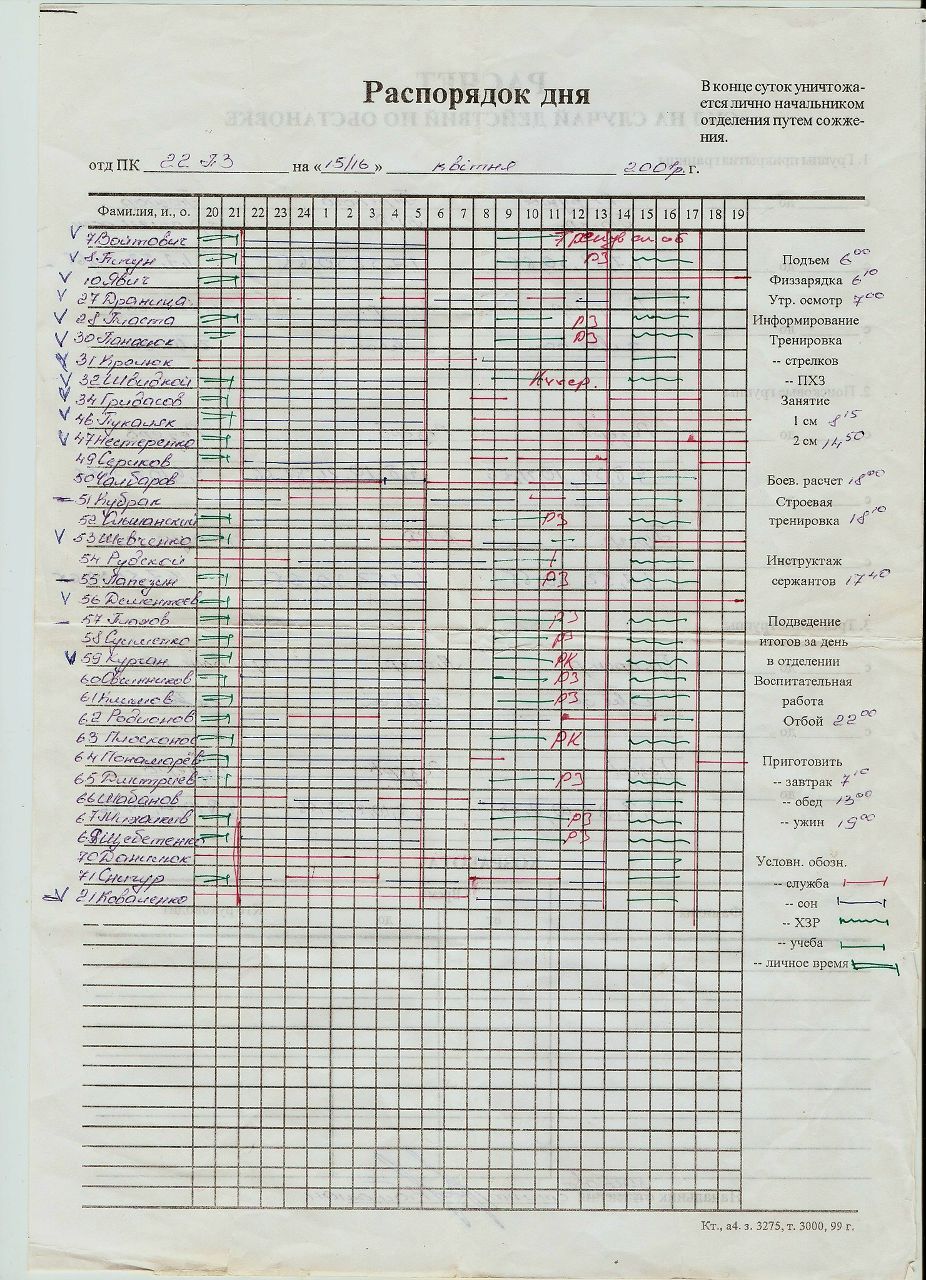 Распорядок дня
В конце суток уничтожа-
ется лично начальником
отделения путем сожже-
ния.
отд ПК 22 ПЗ на «15/16» квітня 2001р. г.
Фамилия, и., о. 20 21 22 23 24 1 2 3 4 5 6 7 8 9 10 11 12 13 14 15 16 17 18 19
7 Войтович
8 РЗ
10 Явич
27 Драница
28 Пласта РЗ
30 Панасюк РЗ
31 Кролюк
32 Швидкой
34 Гридасов
46
47 Нестеренко
49 Сериков
50 Чалбаров
51 Кубрак
52 РЗ
53 Шевченко
54 Рудской
55 Лапезин РЗ
56 Дементьев
57 РЗ
58 РЗ
59 Курган РК
60 Овчинников РЗ
61 РЗ
62 Родионов
63 РК
64 Пономарёв
65 Дмитриев РЗ
66 Шабанов
67 РЗ
68 Щебетенко РЗ
70 Данилюк
71 Снигур
21 Коваленко
Подъем 6 00
Физзарядка 6 10
Утр. осмотр 7 00
Информирование
Тренировка
-- стрелков
-- ПХЗ
Занятие
1 см 8 15
2 см 14 50
Боев. расчет 18 00
Строевая
тренировка 18 10
Инструктаж
сержантов 17 40
Подведение
итогов за день
в отделении
Воспитательная
работа
Отбой 22 00
Приготовить
-- завтрак 7 10
-- обед 13 00
-- ужин 19 00
Условн. обозн.
-- служба
-- сон
-- ХЗР
-- учеба
-- личное время
Кт., а4. з. 3275, т. 3000, 99 г.